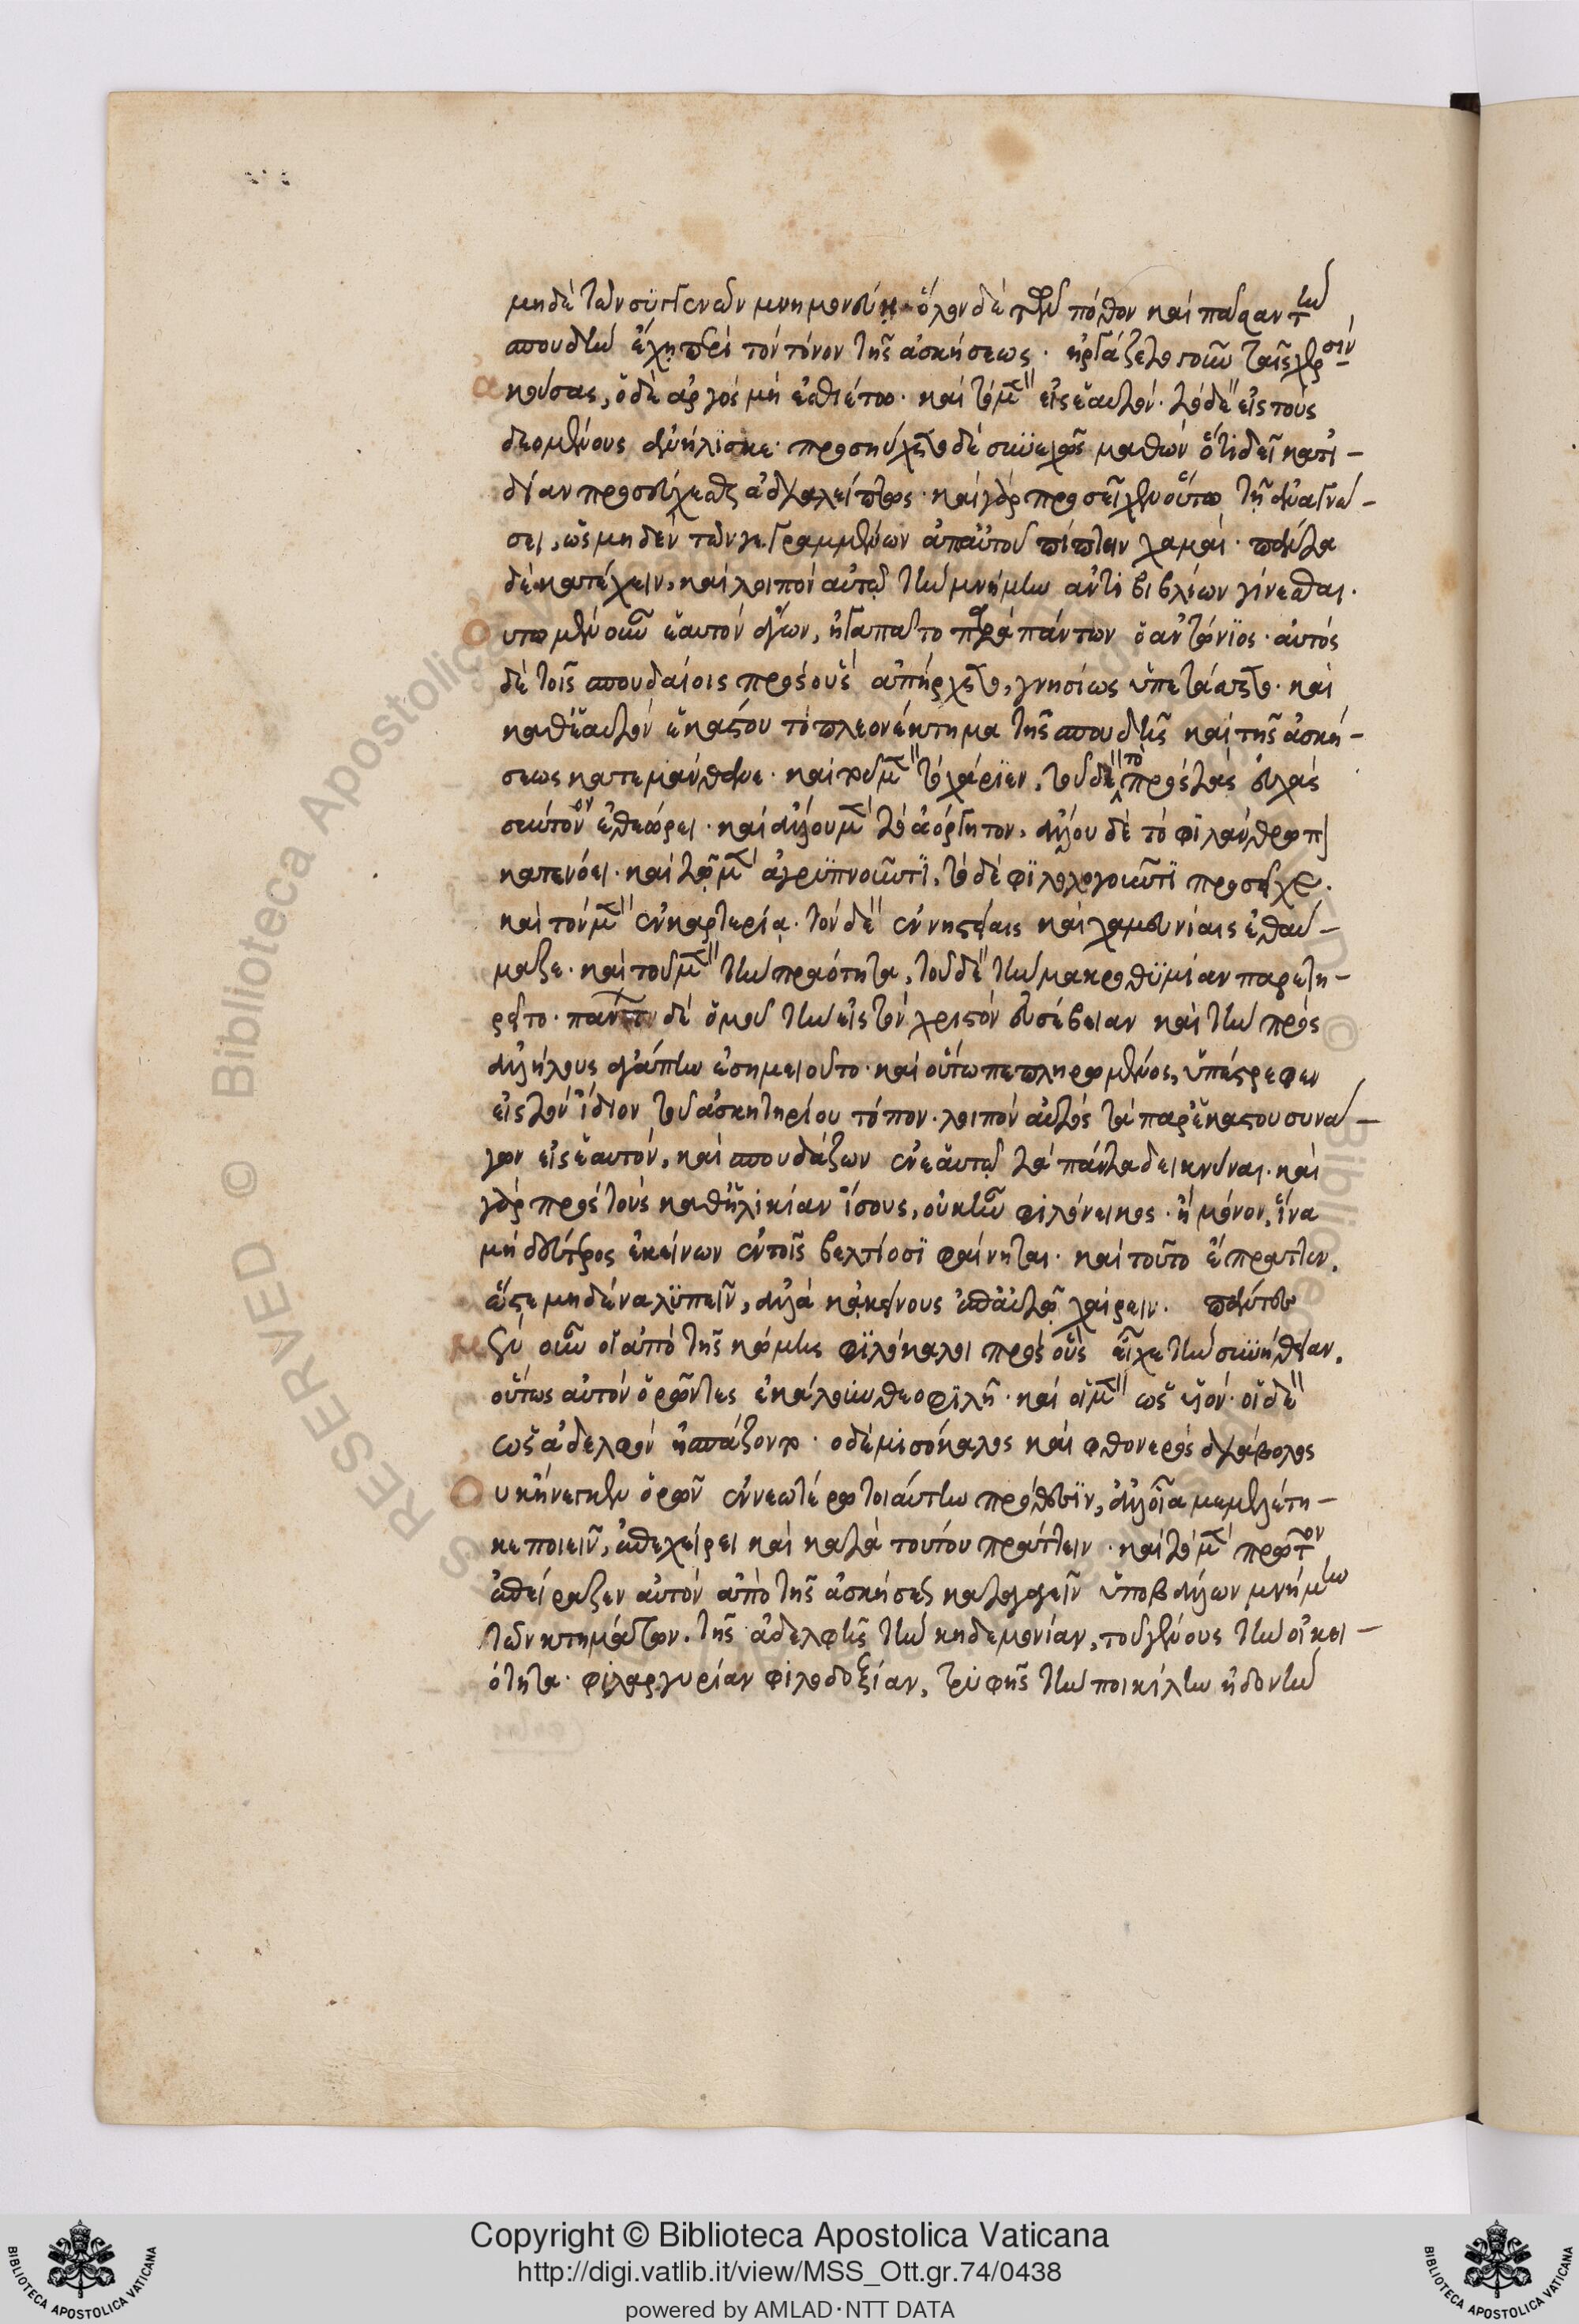 μηδὲ τῶν συγγενῶν μνημονεύῃ· ὅλον δὲ τὸν πόθον καὶ πᾶσαν τὴν
σπουδὴν ἔχῃ περὶ τὸν τόνον τῆς ἀσκήσεως. εἰργάζετο γοῦν ταῖς χερσὶν
ἀκούσας, ὁ δὲ ἀργὸς μὴ ἐσθιέτω. καὶ τὸ μὲν εἰς ἑαυτὸν. τὸ δὲ εἰς τοὺς
δεομένους ἀνήλισκε. προσηύχετο δὲ συνεχῶς μαθὼν ὅτι δεῖ κατι-
δίαν προσεύχεσθαι ἀδιαλείπτως. καὶ γὰρ προσεῖχεν οὕτω τῇ ἀναγνώ-
σει, ὡς μηδὲν τῶν γεγραμμένων ἀπ αὐτοῦ πίπτειν χαμαί. πάντα
δὲ κατέχειν, καὶ λοιπὸν αὐτῷ τὴν μνήμην ἀντὶ βιβλίων γίνεσθαι.
Οὕτω μὲν οὖν ἑαυτὸν ἄγων, ἠγαπᾶτο παρὰ πάντων ὁ ἀντώνιος. αὐτὸς
δὲ τοῖς σπουδαίοις πρὸς οὓς ἀπήρχετο, γνησίως ὑπετάσσετο. καὶ
καθ ἑαυτὸν ἑκάστου τὸ πλεονέκτημα τῆς σπουδῆς καὶ τῆς ἀσκή-
σεως κατεμάνθανε. καὶ τοῦ μὲν τὸ χάριεν, τοῦ δὲ τὸ πρὸς τὰς εὐχὰς
σύντονον ἐθεώρει. καὶ ἄλλου μὲν τὸ ἀόργητον, ἄλλου δὲ τὸ φιλάνθρωπον
κατενόει. καὶ τῷ μὲν ἀγρυπνοῦντι, τῷ δὲ φιλολογοῦντι προσεῖχε.
καὶ τὸν μὲν ἐν καρτερίᾳ. τὸν δὲ ἐν νηστείαις καὶ χαμευνίαις ἐθαύ-
μαζε. καὶ τοῦ μὲν τὴν πραότητα, τοῦ δὲ τὴν μακροθυμίαν παρετη-
ρεῖτο. πάντων δὲ ὁμοῦ τὴν εἰς τὸν χριστὸν εὐσέβειαν καὶ τὴν πρὸς
ἀλλήλους ἀγάπην ἐσημειοῦτο. καὶ οὕτω πεπληρωμένος, ὑπέστρεφεν
εἰς τὸν ἴδιον τοῦ ἀσκητηρίου τόπον. λοιπὸν αὐτὸς τὰ παρ ἑκάστου συνά-
γων εἰς ἑαυτὸν, καὶ σπουδάζων ἐν ἑαυτῷ τὰ πάντα δεικνύναι. καὶ
γὰρ πρὸς τοὺς καθ ἡλικίαν ἴσους, οὐκ ἦν φιλόνεικος. ἢ μόνον, ἵνα
μὴ δεύτερος ἐκείνων ἐν τοῖς βελτίοσι φαίνηται. καὶ τοῦτο ἔπραττεν,
ὥστε μηδένα λυπεῖν, ἀλλὰ κἀκείνους ἐπ αὐτῷ χαίρειν. πάντες
μὲν οὖν οἱ ἀπὸ τῆς κώμης φιλόκαλοι πρὸς οὓς εἶχε τὴν συνήθειαν,
οὕτως αὐτὸν ὁρῶντες ἐκάλουν θεοφιλῆ. καὶ οἱ μὲν ὡς υἱόν. οἱ δὲ
ὡς ἀδελφὸν ἠσπάζοντο. ὁ δὲ μισόκαλος καὶ φθονερὸς διάβολος
Οὐκ ἤνεγκεν ὁρῶν ἐν νεωτέρῳ τοιαύτην πρόθεσιν, ἀλλ οἷα μεμελέτη-
κε ποιεῖν, ἐπεχείρει καὶ κατὰ τούτου πράττειν. καὶ τὸ μὲν πρῶτον
ἐπείραζεν αὐτὸν ἀπὸ τῆς ἀσκήσεως καταγαγεῖν ὑποβάλλων μνήμην
τῶν κτημάτων. τῆς ἀδελφῆς τὴν κηδεμονίαν, τοῦ γένους τὴν οἰκει-
ότητα. φιλαργυρίαν φιλοδοξίαν, τρυφῆς τὴν ποικίλην ἡδονὴν
Copyright © Biblioteca Apostolica Vaticana
http://digi.vatlib.it/view/MSS_Ott.gr.74/0438
powered by AMLAD·NTT DATA